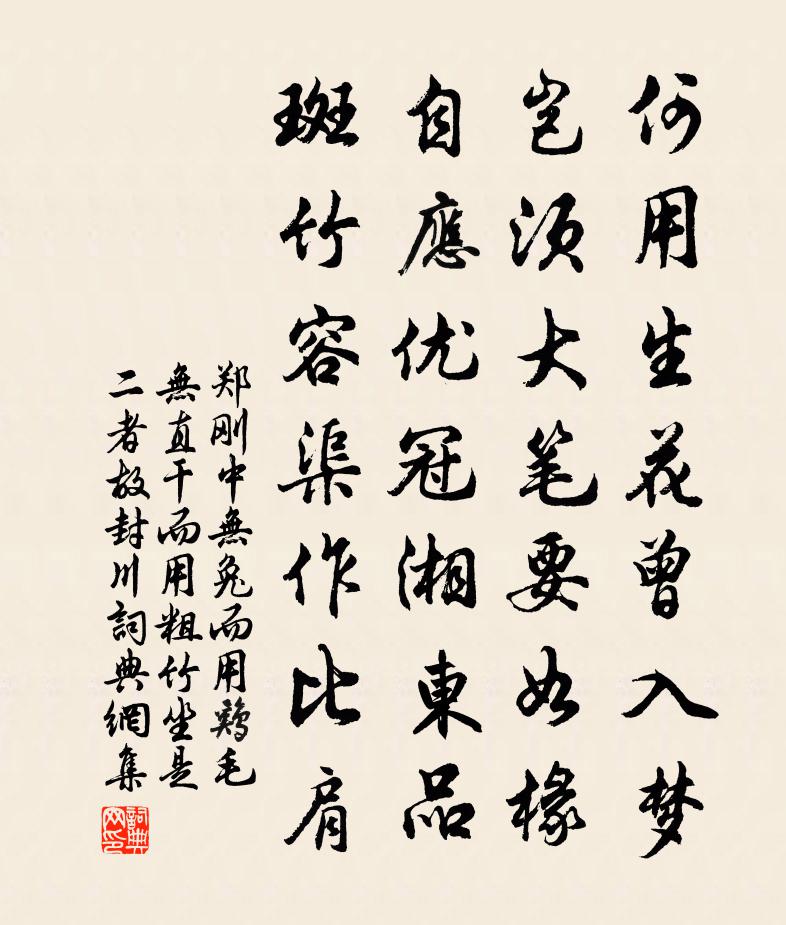 何用生花曾入梦
岂须大笔要如椽
自應优冠湘東品
斑竹容渠作比肩
郑刚中無兔而用鸡毛
無直干而用粗竹坐是
二者故封川詞典網集
詞典
网印